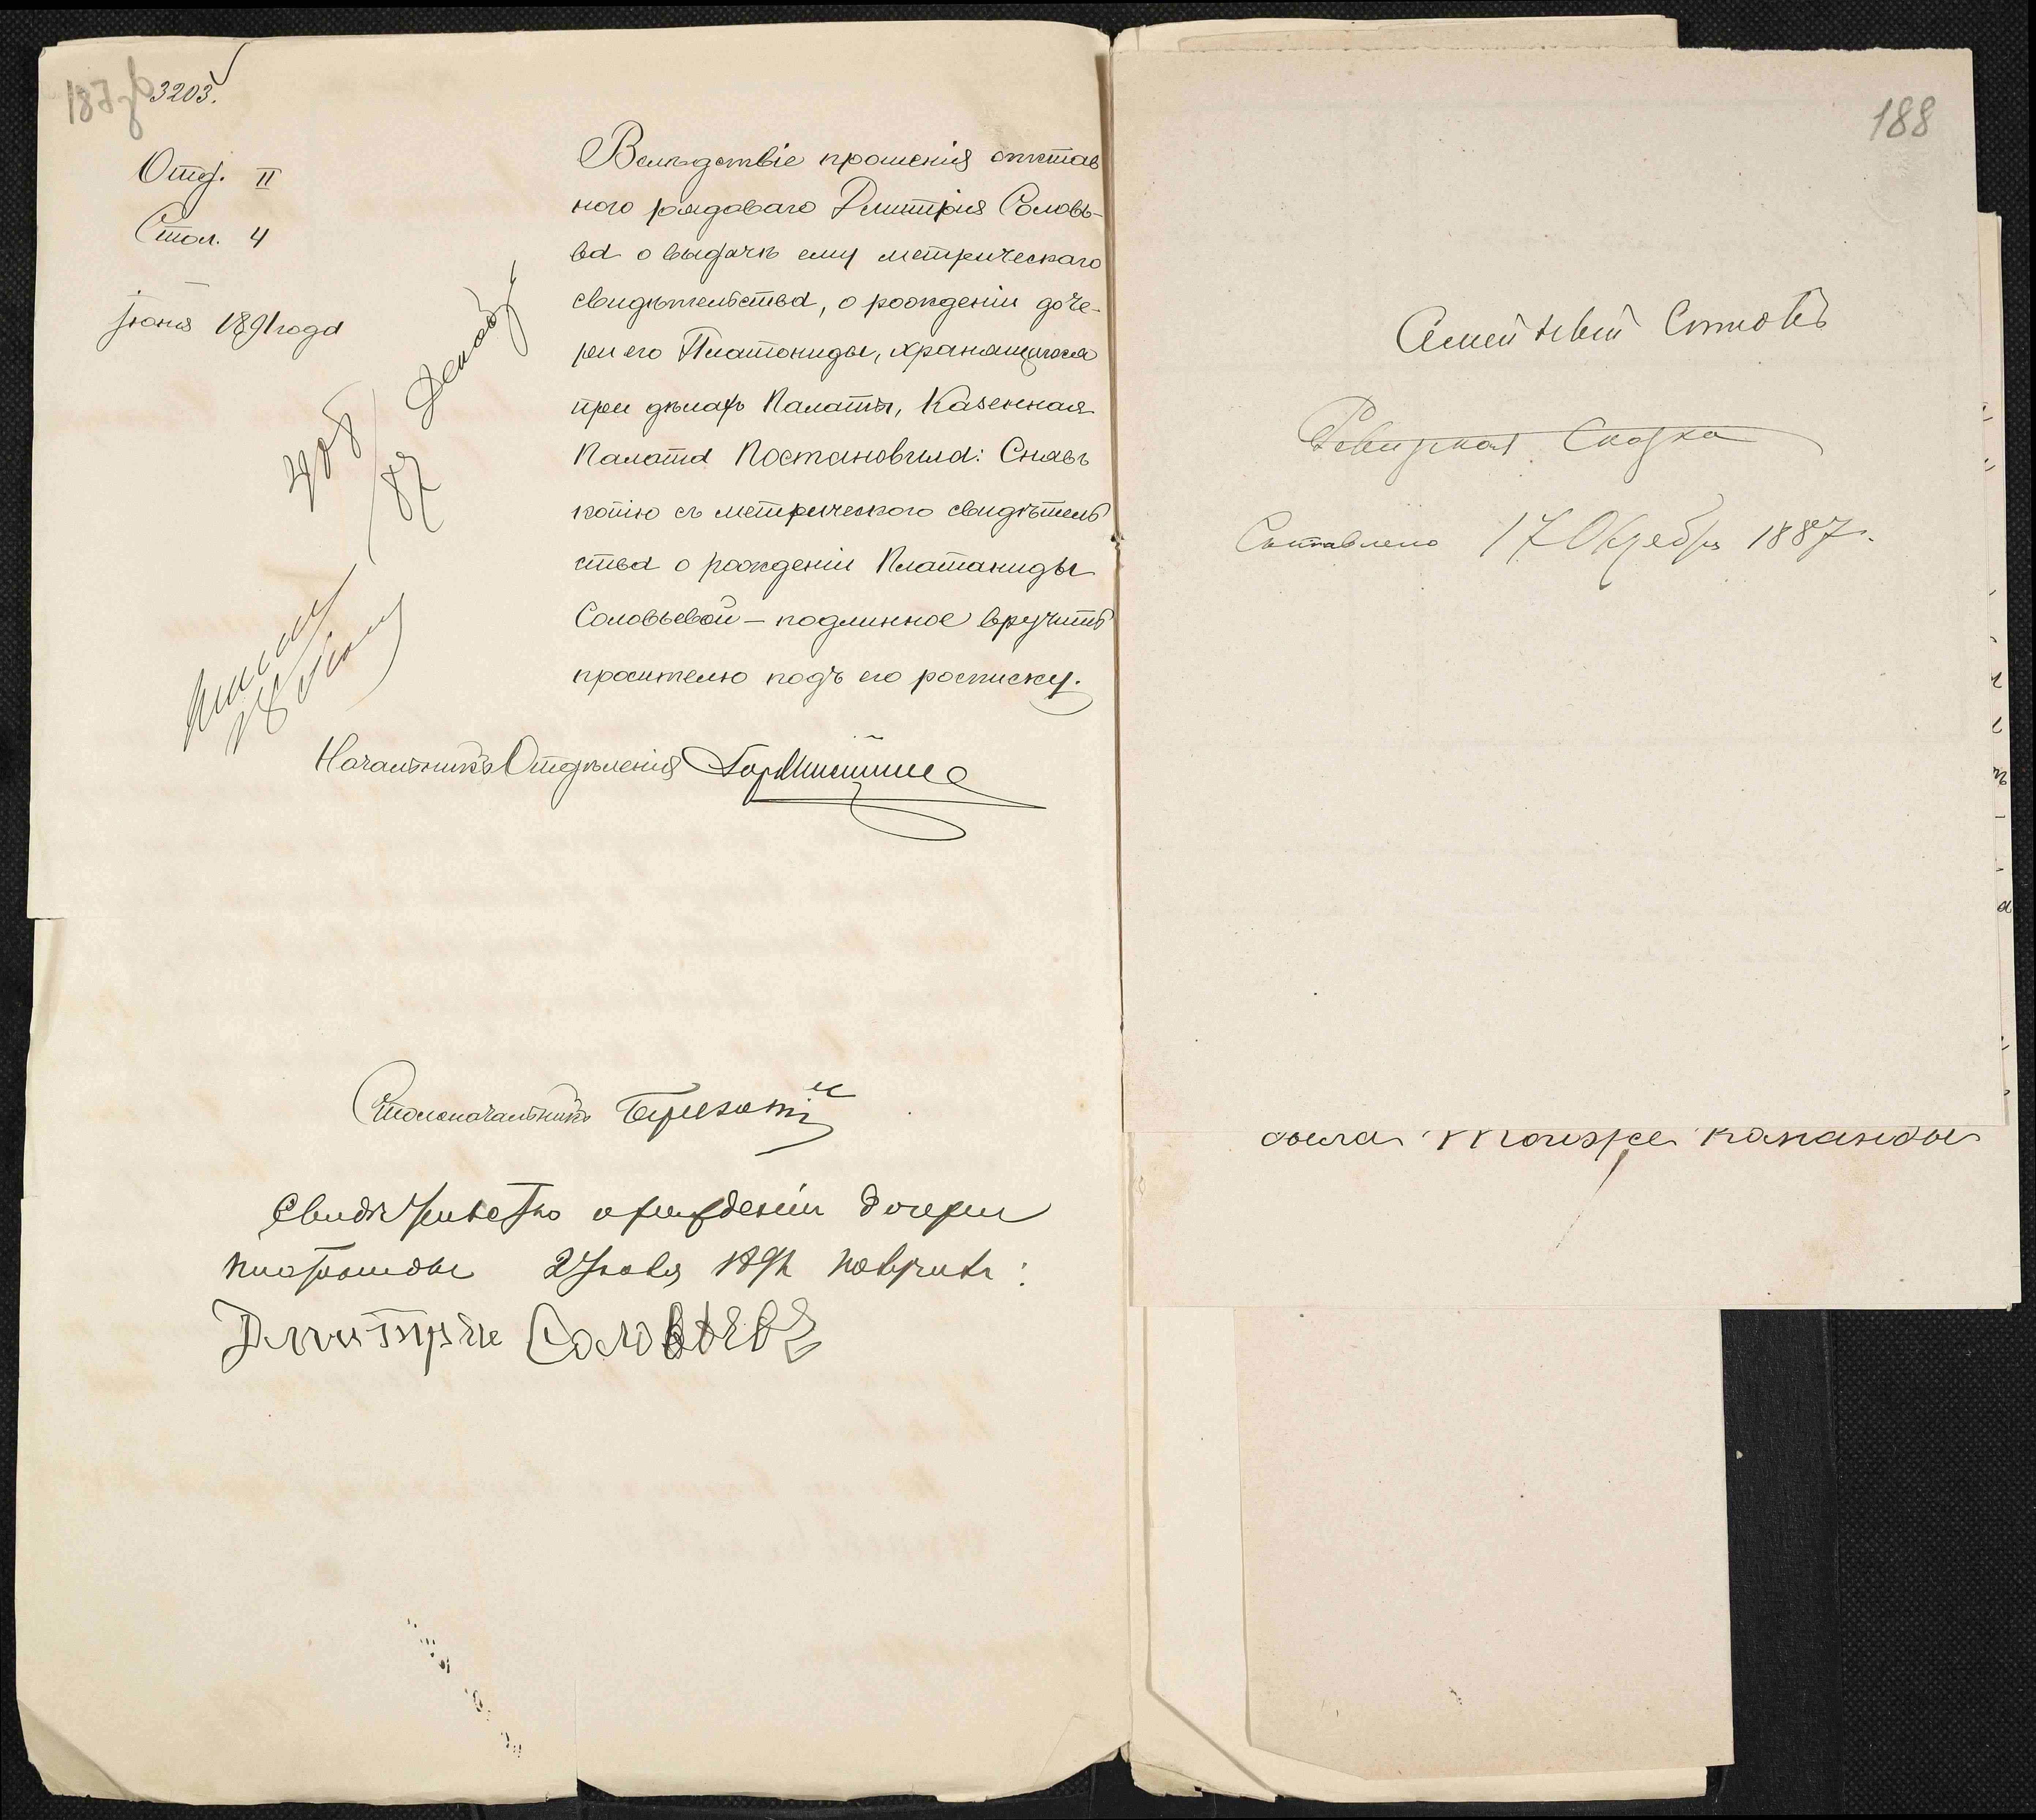 187об
3203.
Отд. II
Стол. 4
Іюня 1891 года
408/87 Декабр
18 Іюня
Вслѣдствіе прошенія отстав
ного рядоваго Дмитрія Соловь-
ва о выдачѣ ему метрическаго
свидѣтельства, о рожденіи доче-
ри его Платониды, хранящагося
при дѣлахъ Палаты, Казенная
Палата Постановила: Снявъ
копію съ метрическаго свидѣтель
ства о рожденіи Платаниды
Соловьевой – подлинное вручить
просителю подъ его росписку.
Начальникъ Отдѣленія
Столоначальникъ
Свидѣтельство о рожденіи дочери
Платониды 2 Іюля 1891
Дмитрие Соловьевъ
188
Семейный Списокъ
Ревизская Сказка
Составлено 17 Октября 1887.
была